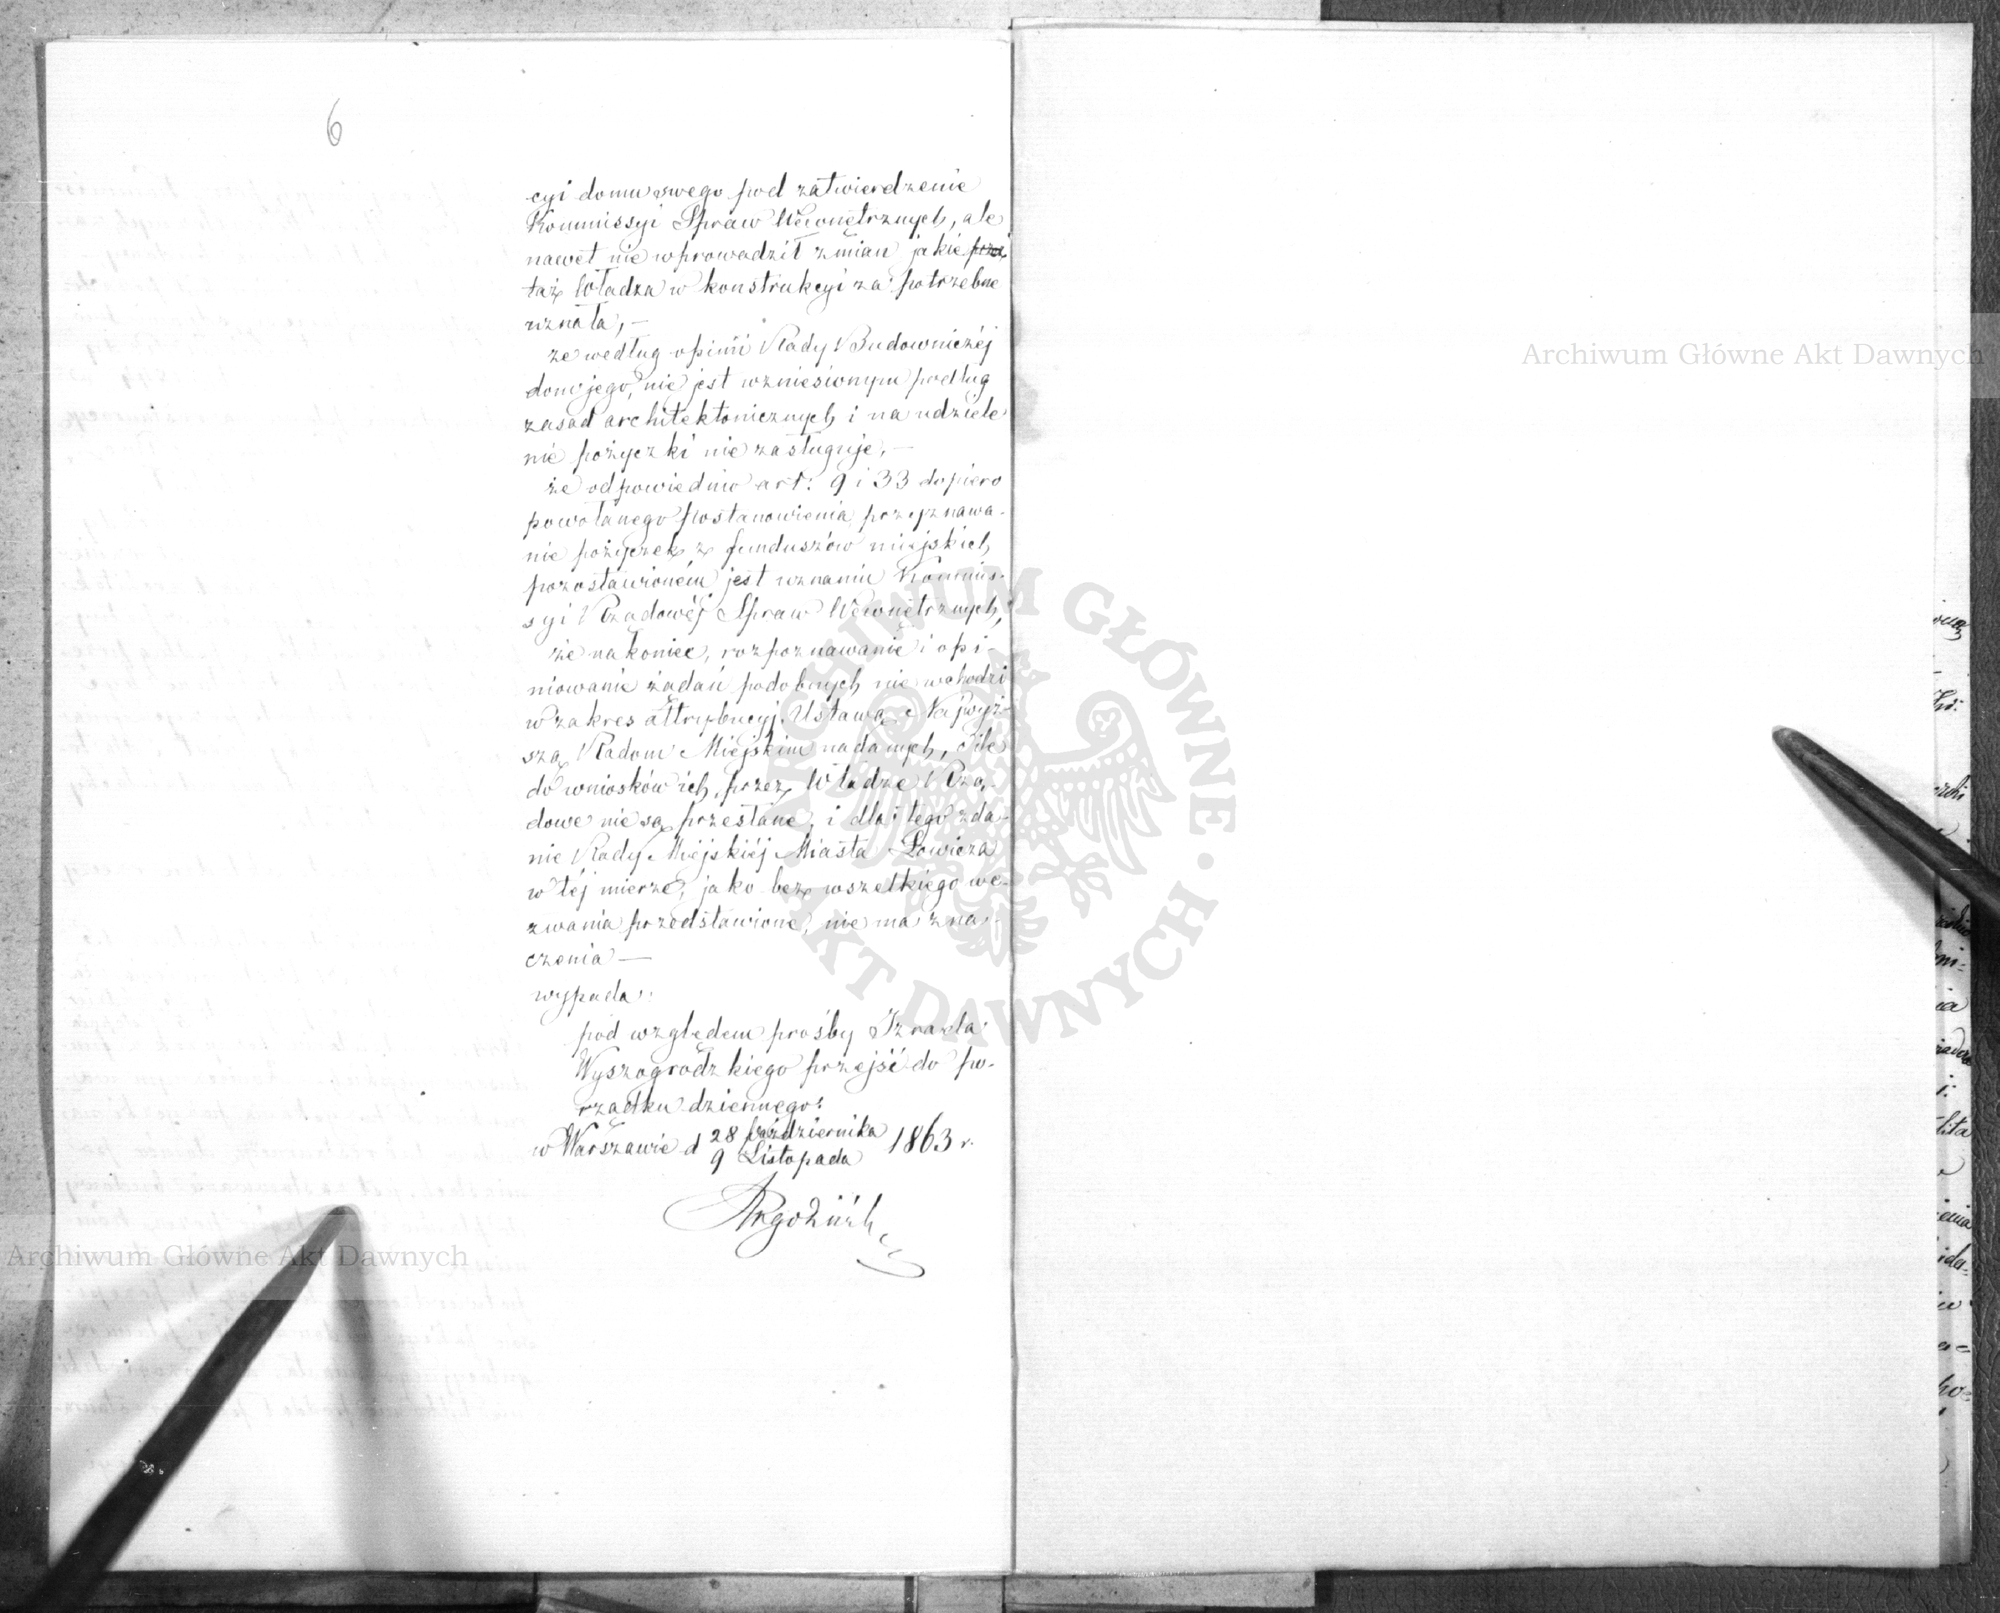 6
cyi domu swego pod zatwierdzenie
Kommissyi Spraw Wewnętrznych, ale
nawet nie wprowadził zmian jakie przez
taż Władza w konstrukcyi za potrzebne
uznała, —
że według opinii Rady Budowniczéj
dom jego, nie jest wzniesionym podług
zasad architektonicznych i na udziele
nie pożyczki nie zasługuje, —
że odpowiednio art: 9 i 33 dopiero
powołanego Postanowienia, przyznawa-
nie pożyczek z funduszów miejskich,
pozostawioném jest uznaniu Kommis-
syi Rządowéj Spraw Wewnętrznych,
że nakoniec, rozpoznawanie i opi-
niowanie żądań podobnych nie wchodzi
w zakres attrybucyj Ustawą Najwyż-
szą Radom Miejskim nadanych, o ile
do wniosków ich, przez Władze Rzą-
dowe nie są przesłane, i dla tego zda-
nie Rady Miejskiéj Miasta Łowicza
w téj mierze, jako bez wszelkiego we-
zwania przedstawione, nie ma zna-
czenia —
wypada:
pod względem prośby Izraela
Wyszogrodzkiego przejść do po-
rządku dziennego.
w Warszawie d 28 Października
9 Listopada 1863 r.
Archiwum Główne Akt Dawnych
Archiwum Główne Akt Dawnych
ARCHIWUM GŁÓWNE AKT DAWNYCH